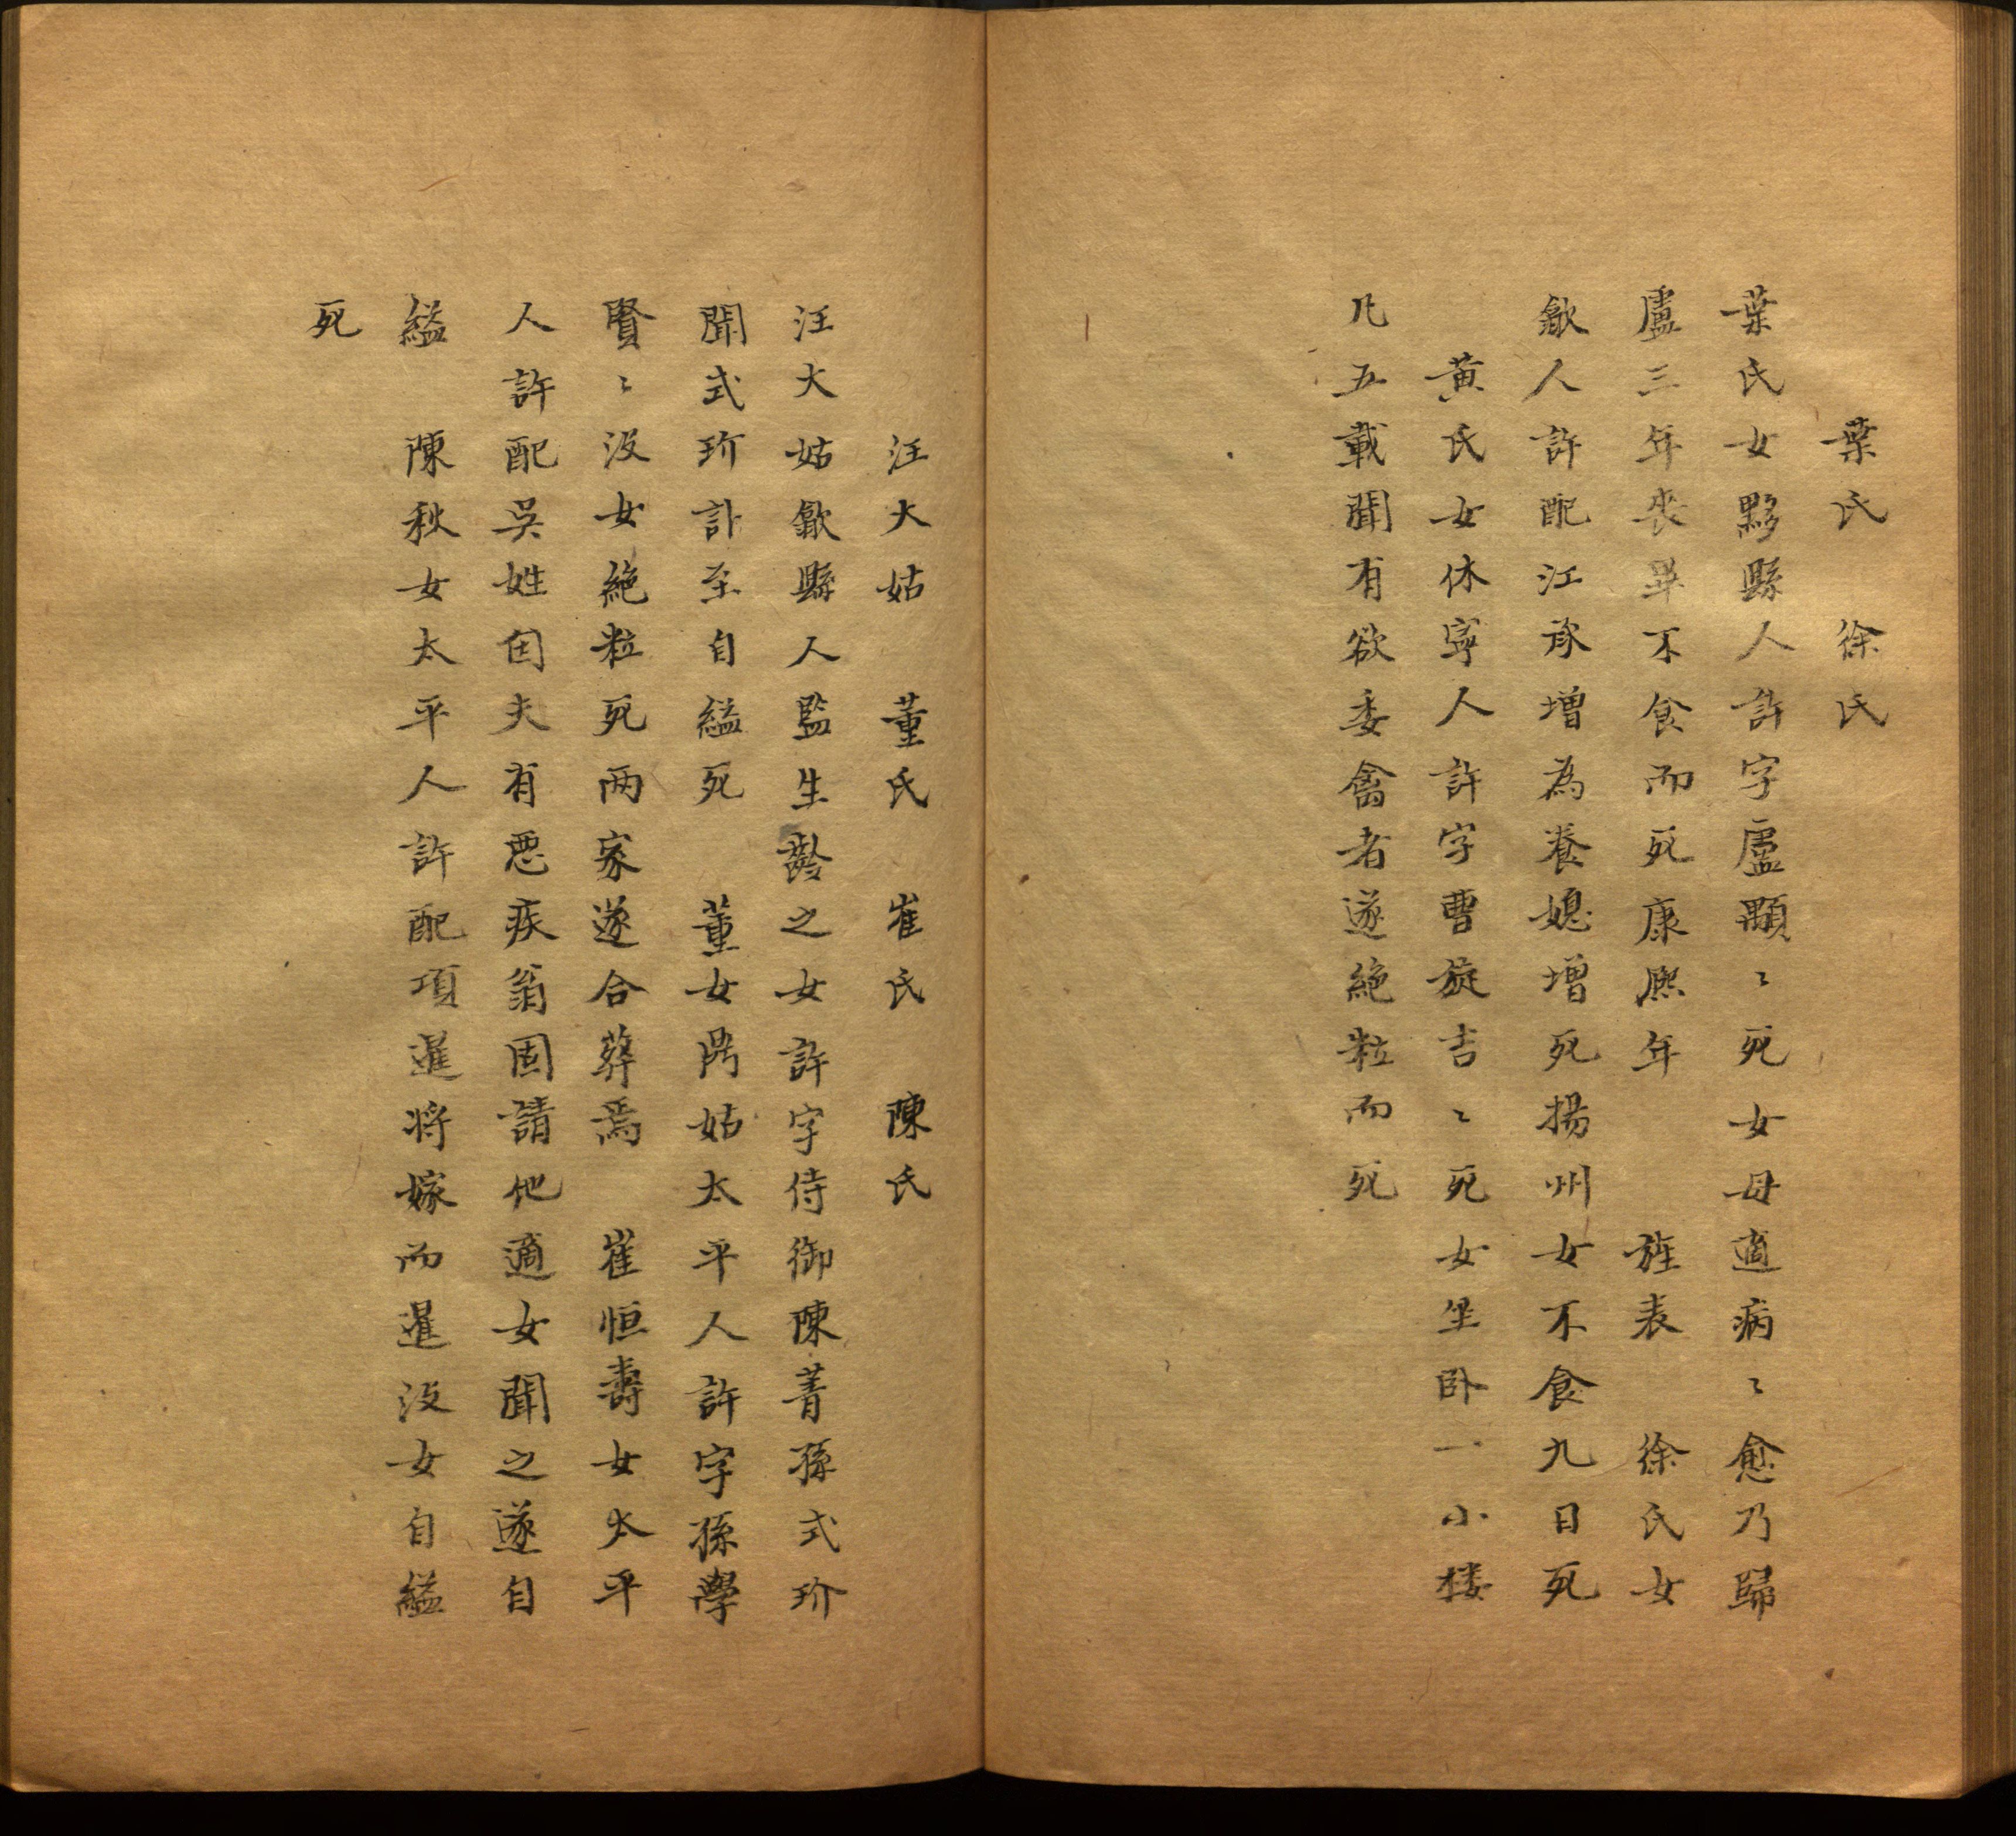 葉氏　徐氏
葉氏女黟縣人許字盧顯〻死女母適病〻愈乃歸
盧三年喪畢不食而死康熙年　旌表　徐氏女
歙人許配江承增為養媳增死揚州女不食九日死
黄氏女休寧人許字曹旋吉〻死女坐卧一小楼
凡五載聞有欲委禽者遂絶粒而死
汪大姑　董氏　崔氏　陳氏
汪大姑歙縣人監生齡之女許字侍御陳菁孫式玠
聞式玠訃至自縊死　董女閗姑太平人許字孫學
賢〻没女絶粒死两家遂合葬焉　崔恒壽女太平
人許配吳姓因夫有悪疾翁固請他適女聞之遂自
縊　陳秋女太平人許配項暹將嫁而暹没女自縊
死